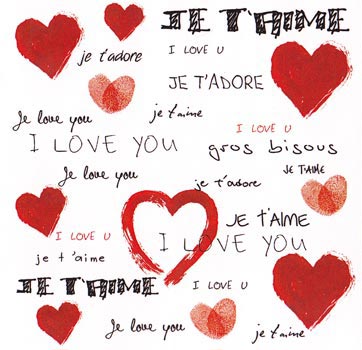 JE T'AIME
I LOVE U
je t'adore
JE T'ADORE
je t'aime
Je love you
I LOVE U
I LOVE YOU
gros bisous
JE T'AIME
Je love you
je t'adore
JE t'AIME
I LOVE U
I LOVE YOU
je t'aime
JE T'AIME
I LOVE U
Je love you
je t'aime